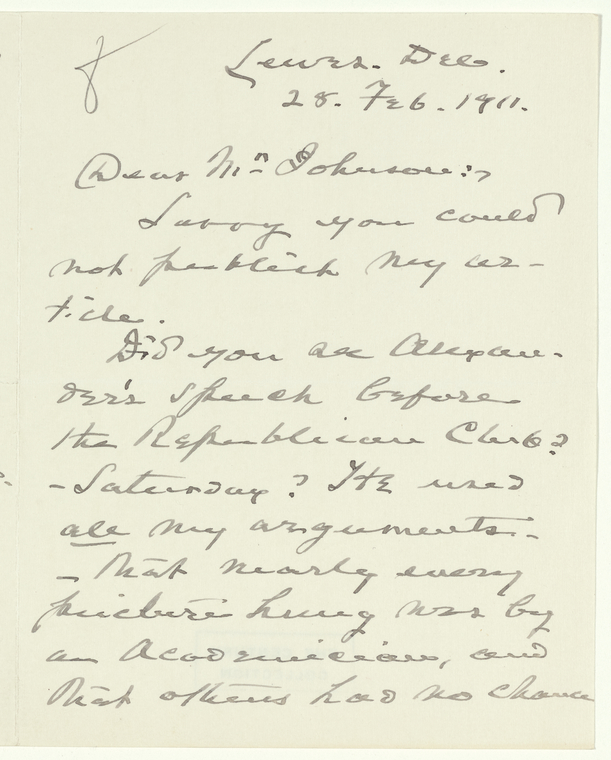 Lewes. Del.
28. Feb. 1911.
Dear Mr. Johnson:,
Sorry you could
not publish my ar-
ticle.
Did you see Alexan-
der's speech before
the Republican Club?
- Saturday? He used
all my arguments. -
- That nearly every
picture hung was by
an Academician, and
that others had no chance